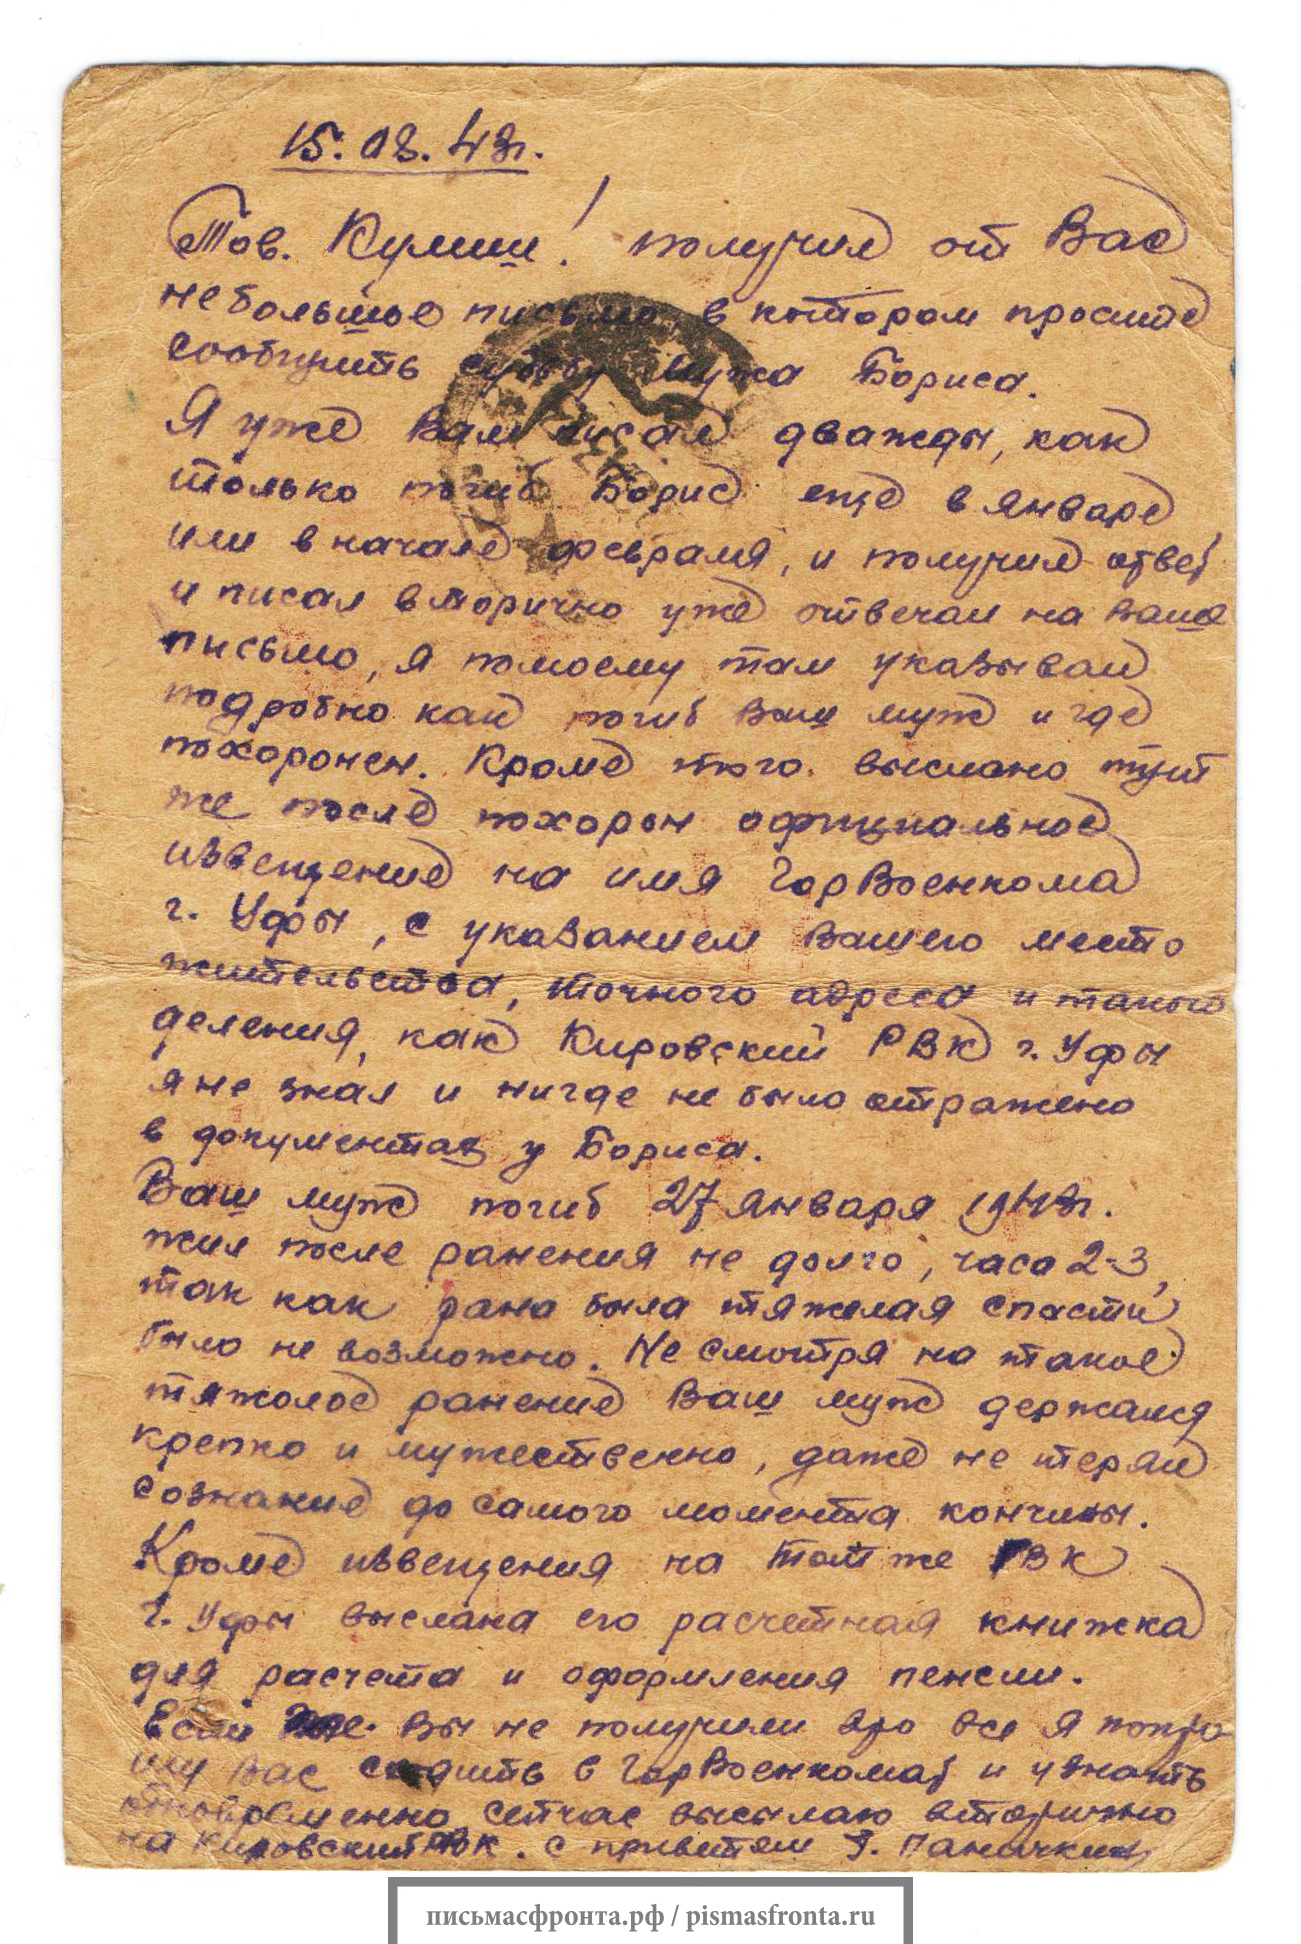 15.08.43г.
Тов. Кулиш! получил от Вас
небольшое письмо в котором просите
сообщить судьбу мужа Бориса.
Я уже Вам писал дважды, как
только погиб Борис еще в январе
или в начале февраля, и получил ответ
и писал вторично уже отвечал на Ваше
письмо, я помоему там указывал
подробно как погиб Ваш муж и где
похоронен. Кроме того выслано тут
же после похорон официальное
извещение на имя ГорВоенкома
г. Уфы, с указанием Вашего место
жительства, точного адреса и такого
деления, как Кировский РВК г. Уфы
я не знал и нигде не было отражено
в документах у Бориса.
Ваш муж погиб 27 января 1943г.
жил после ранения не долго, часа 2-3,
так как рана была тяжелая спасти
было не возможно. Не смотря на такое
тяжолое ранение Ваш муж держался
крепко и мужественно, даже не терял
сознание до самого момента кончины.
Кроме извещения на тот же ГВК
г. Уфы выслана его расчетная книжка
для расчета и оформления пенсии.
Если Вы не получили это все я попро
шу Вас сходить в ГорВоенкомат и узнать
одновременно сейчас высылаю вторично
на Кировский РВК. с приветом Паничкин
письмасфронта.рф / pismasfronta.ru